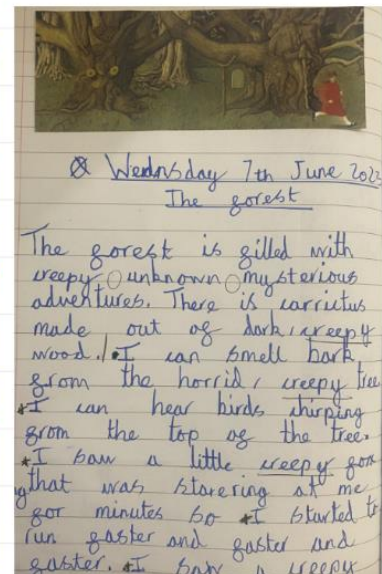 Wednsday 7th June 202
The forest
The forest is filled with
creepy unknown mysterious
adventures. There is carrictus
made out of dark, creepy
wood. I can smell bark
from the horrid, creepy tree
I can hear birds chirping
from the top of the tree.
I saw a little creepy fox
that was starering at me
for minutes so I started to
run faster and faster and
faster. I saw a creepy